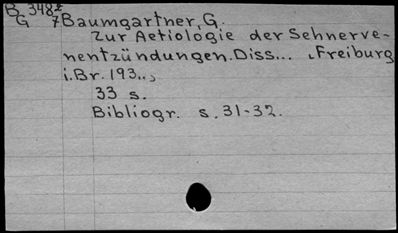 B 348*
G 7 Baumgartner, G.
Zur Aetiologie der Sehnerve-
nentzündungen. Diss... , Freiburg
i.Br. 193..,
33 s.
Bibliogr. s. 31-32.